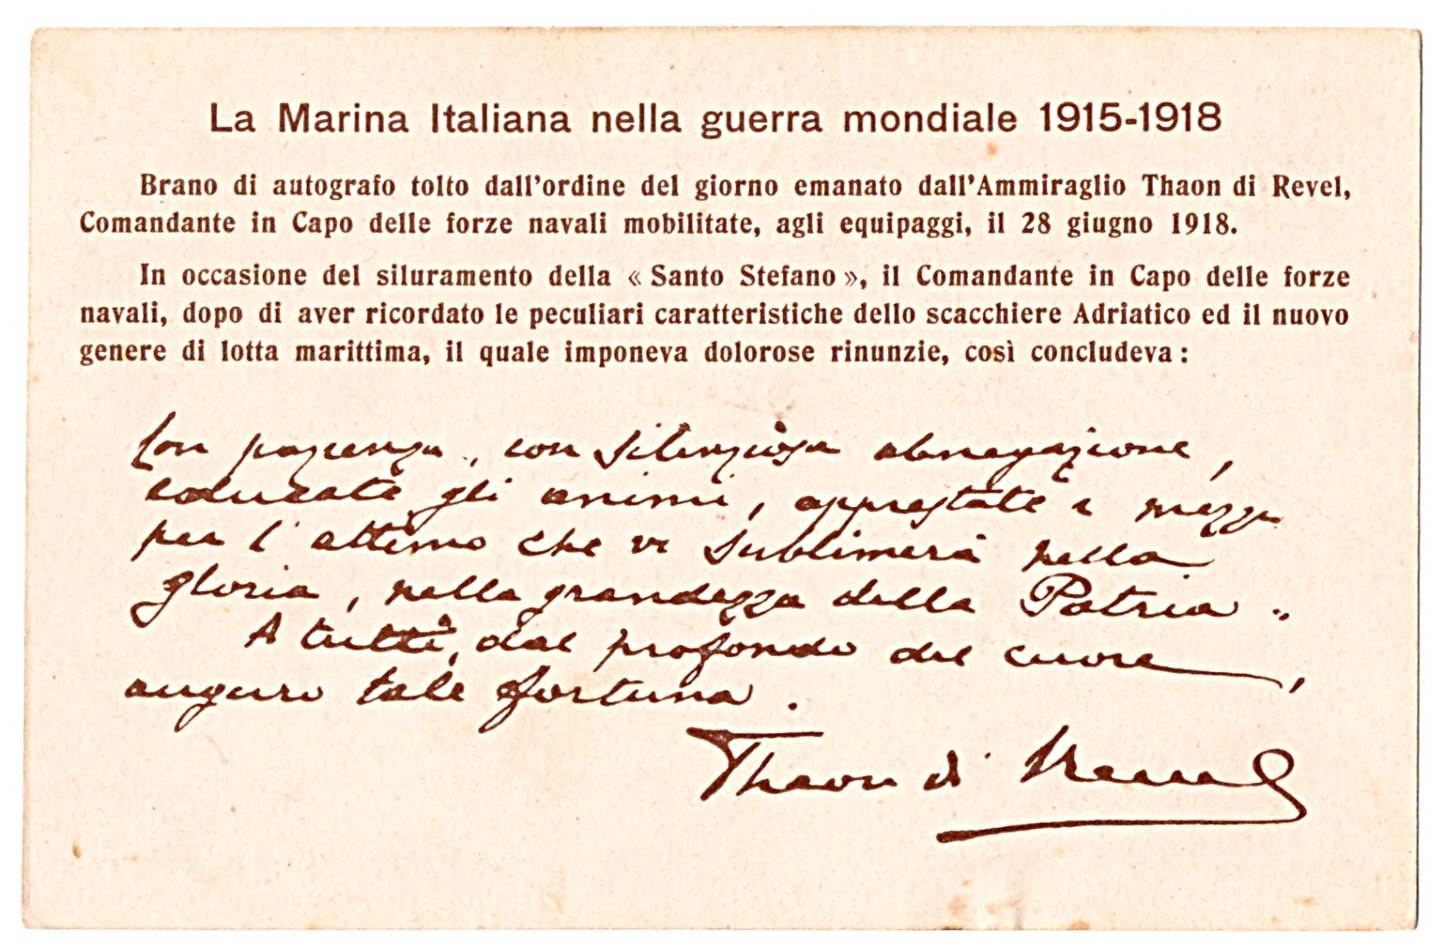 La Marina Italiana nella guerra mondiale 1915-1918
Brano di autografo tolto dall'ordine del giorno emanato dall'Ammiraglio Thaon di Revel,
Comandante in Capo delle forze navali mobilitate, agli equipaggi, il 28 giugno 1918.
In occasione del siluramento della « Santo Stefano », il Comandante in Capo delle forze
navali, dopo di aver ricordato le peculiari caratteristiche dello scacchiere Adriatico ed il nuovo
genere di lotta marittima, il quale imponeva dolorose rinunzie, così concludeva :
Con pazienza, con silenziosa abnegazione,
educate gli animi, apprestate i mezzi
per l'attimo che vi sublimerà nella
gloria, nella grandezza della Patria ..
A tutti, dal profondo del cuore,
auguro tale fortuna.
Thaon di Revel